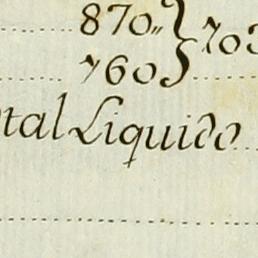 870,,
760
tal Liquido